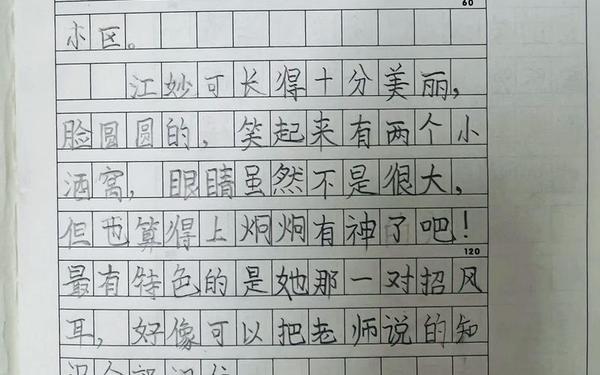 60
小区。
江妙可长得十分美丽，
脸圆圆的，笑起来有两个小
酒窝，眼睛虽然不是很大，
但也算得上炯炯有神了吧！
120
最有特色的是她那一对招风
耳，好像可以把老师说的知
识全部记住